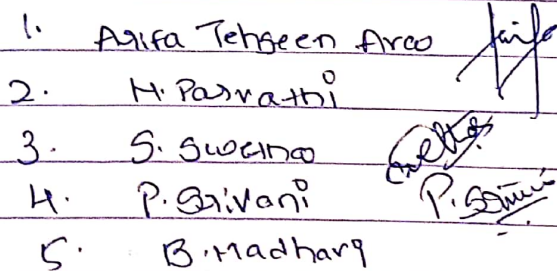 1. Arifa Tehseen Arco
2. H. Parvathi
3. S. Swetha
4. P. Srivani P. Srivani
5. B. Madhavi